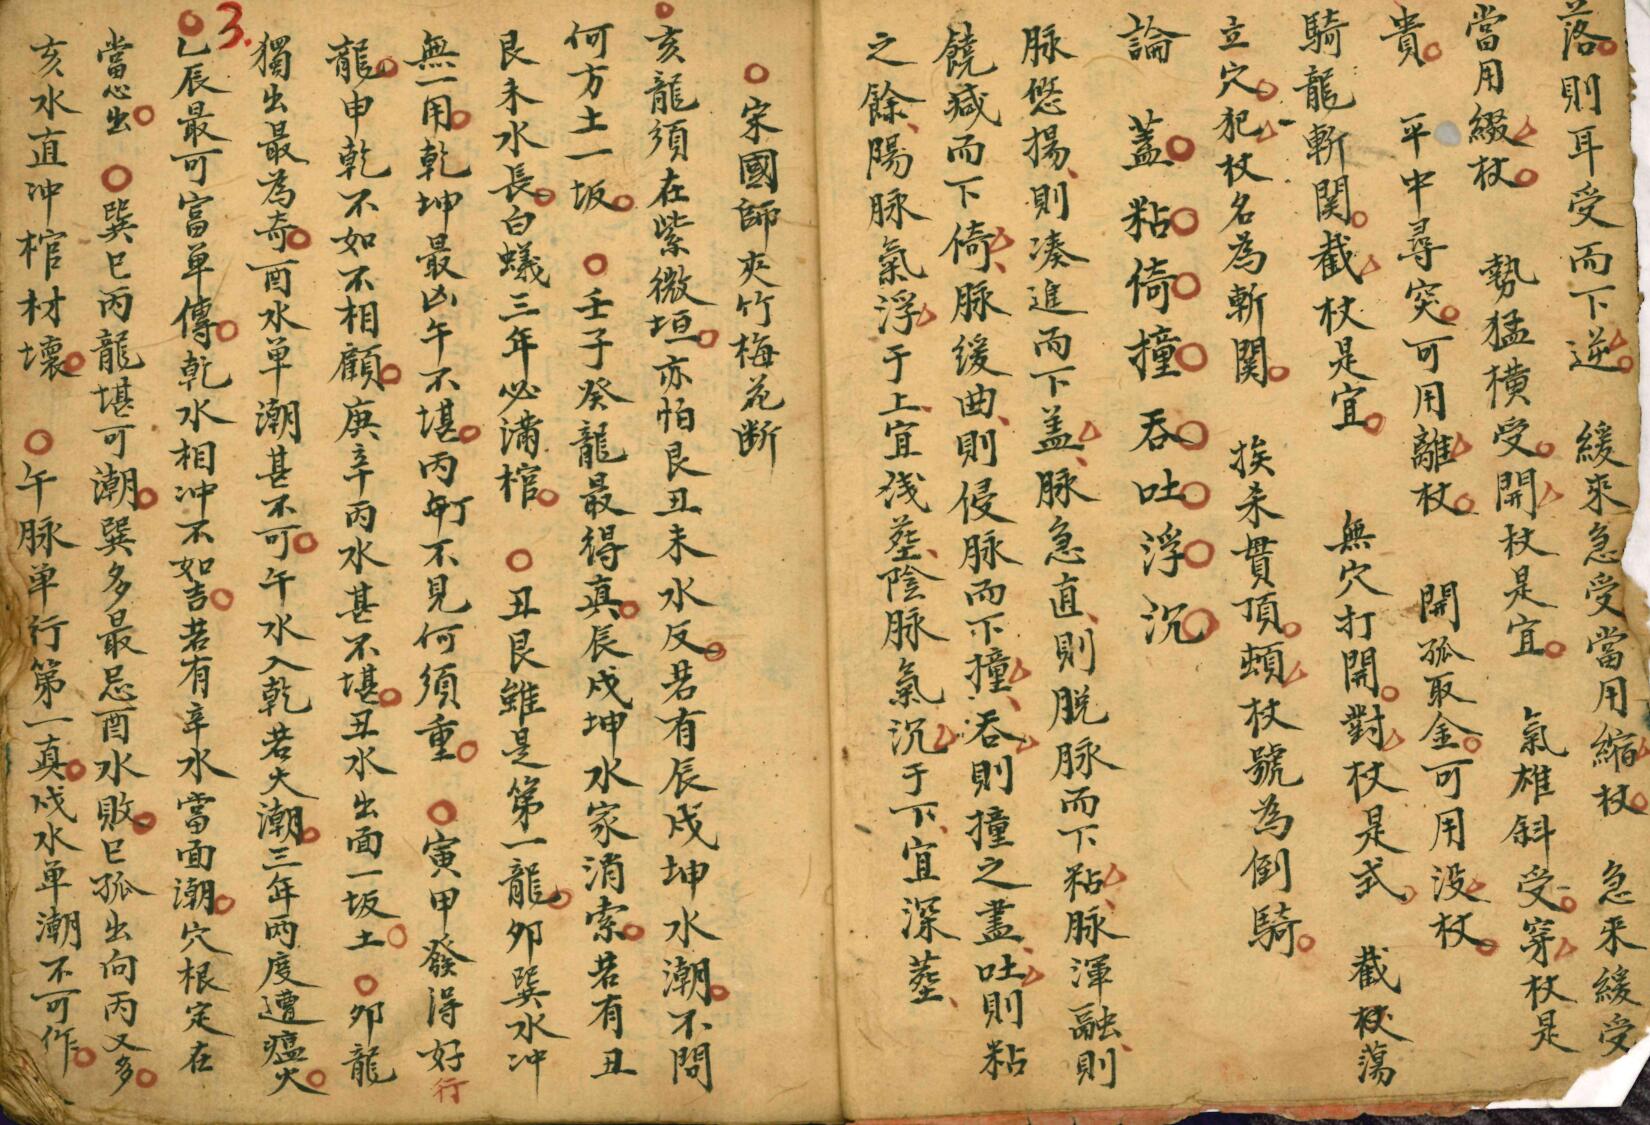 落則耳受而下逆　緩來急受當用縮杖　急來緩受
當用綴杖　勢猛橫受開杖是宜　氣雄斜受穿杖是
貴　平中尋突可用離杖　開孤取金可用没杖
騎龍斬関截杖是宜　無穴打開對杖是式　截杖蕩
立穴犯杖名為斬関　挨未貫頂頓杖號為倒騎
論　蓋粘倚撞吞吐浮沉
脉悠揚則凑進而下盖脉急直則脱脉而下粘脉渾融則
饒减而下倚脉緩曲則侵脉而下撞吞則撞之盡吐則粘
之餘陽脉氣浮于上宜浅塟陰脉氣沉于下宜深塟
宋國師夾竹梅花断
亥龍須在紫微垣亦怕艮丑未水反若有辰戌坤水潮不問
何方土一坂　壬子癸龍最得真辰戌坤水家消索若有丑
艮未水長白蟻三年必满棺　丑艮雖是第一龍夘巽水冲
無一用乾坤最凶午不堪丙丁不見何須重　寅甲發得好行
龍申乾不如不相顧庚辛丙水甚不堪丑水出面一坂土　夘龍
獨出最為奇酉水单潮甚不可午水入乾若大潮三年兩度遭瘟火
乙辰最可富单傳乾水相冲不如吉若有辛水當面潮穴根定在
當心出　巽巳丙龍堪可潮巽多最忌酉水敗巳孤出向丙又多
亥水直冲棺材壞　午脉单行第一真戌水单潮不可作
3.